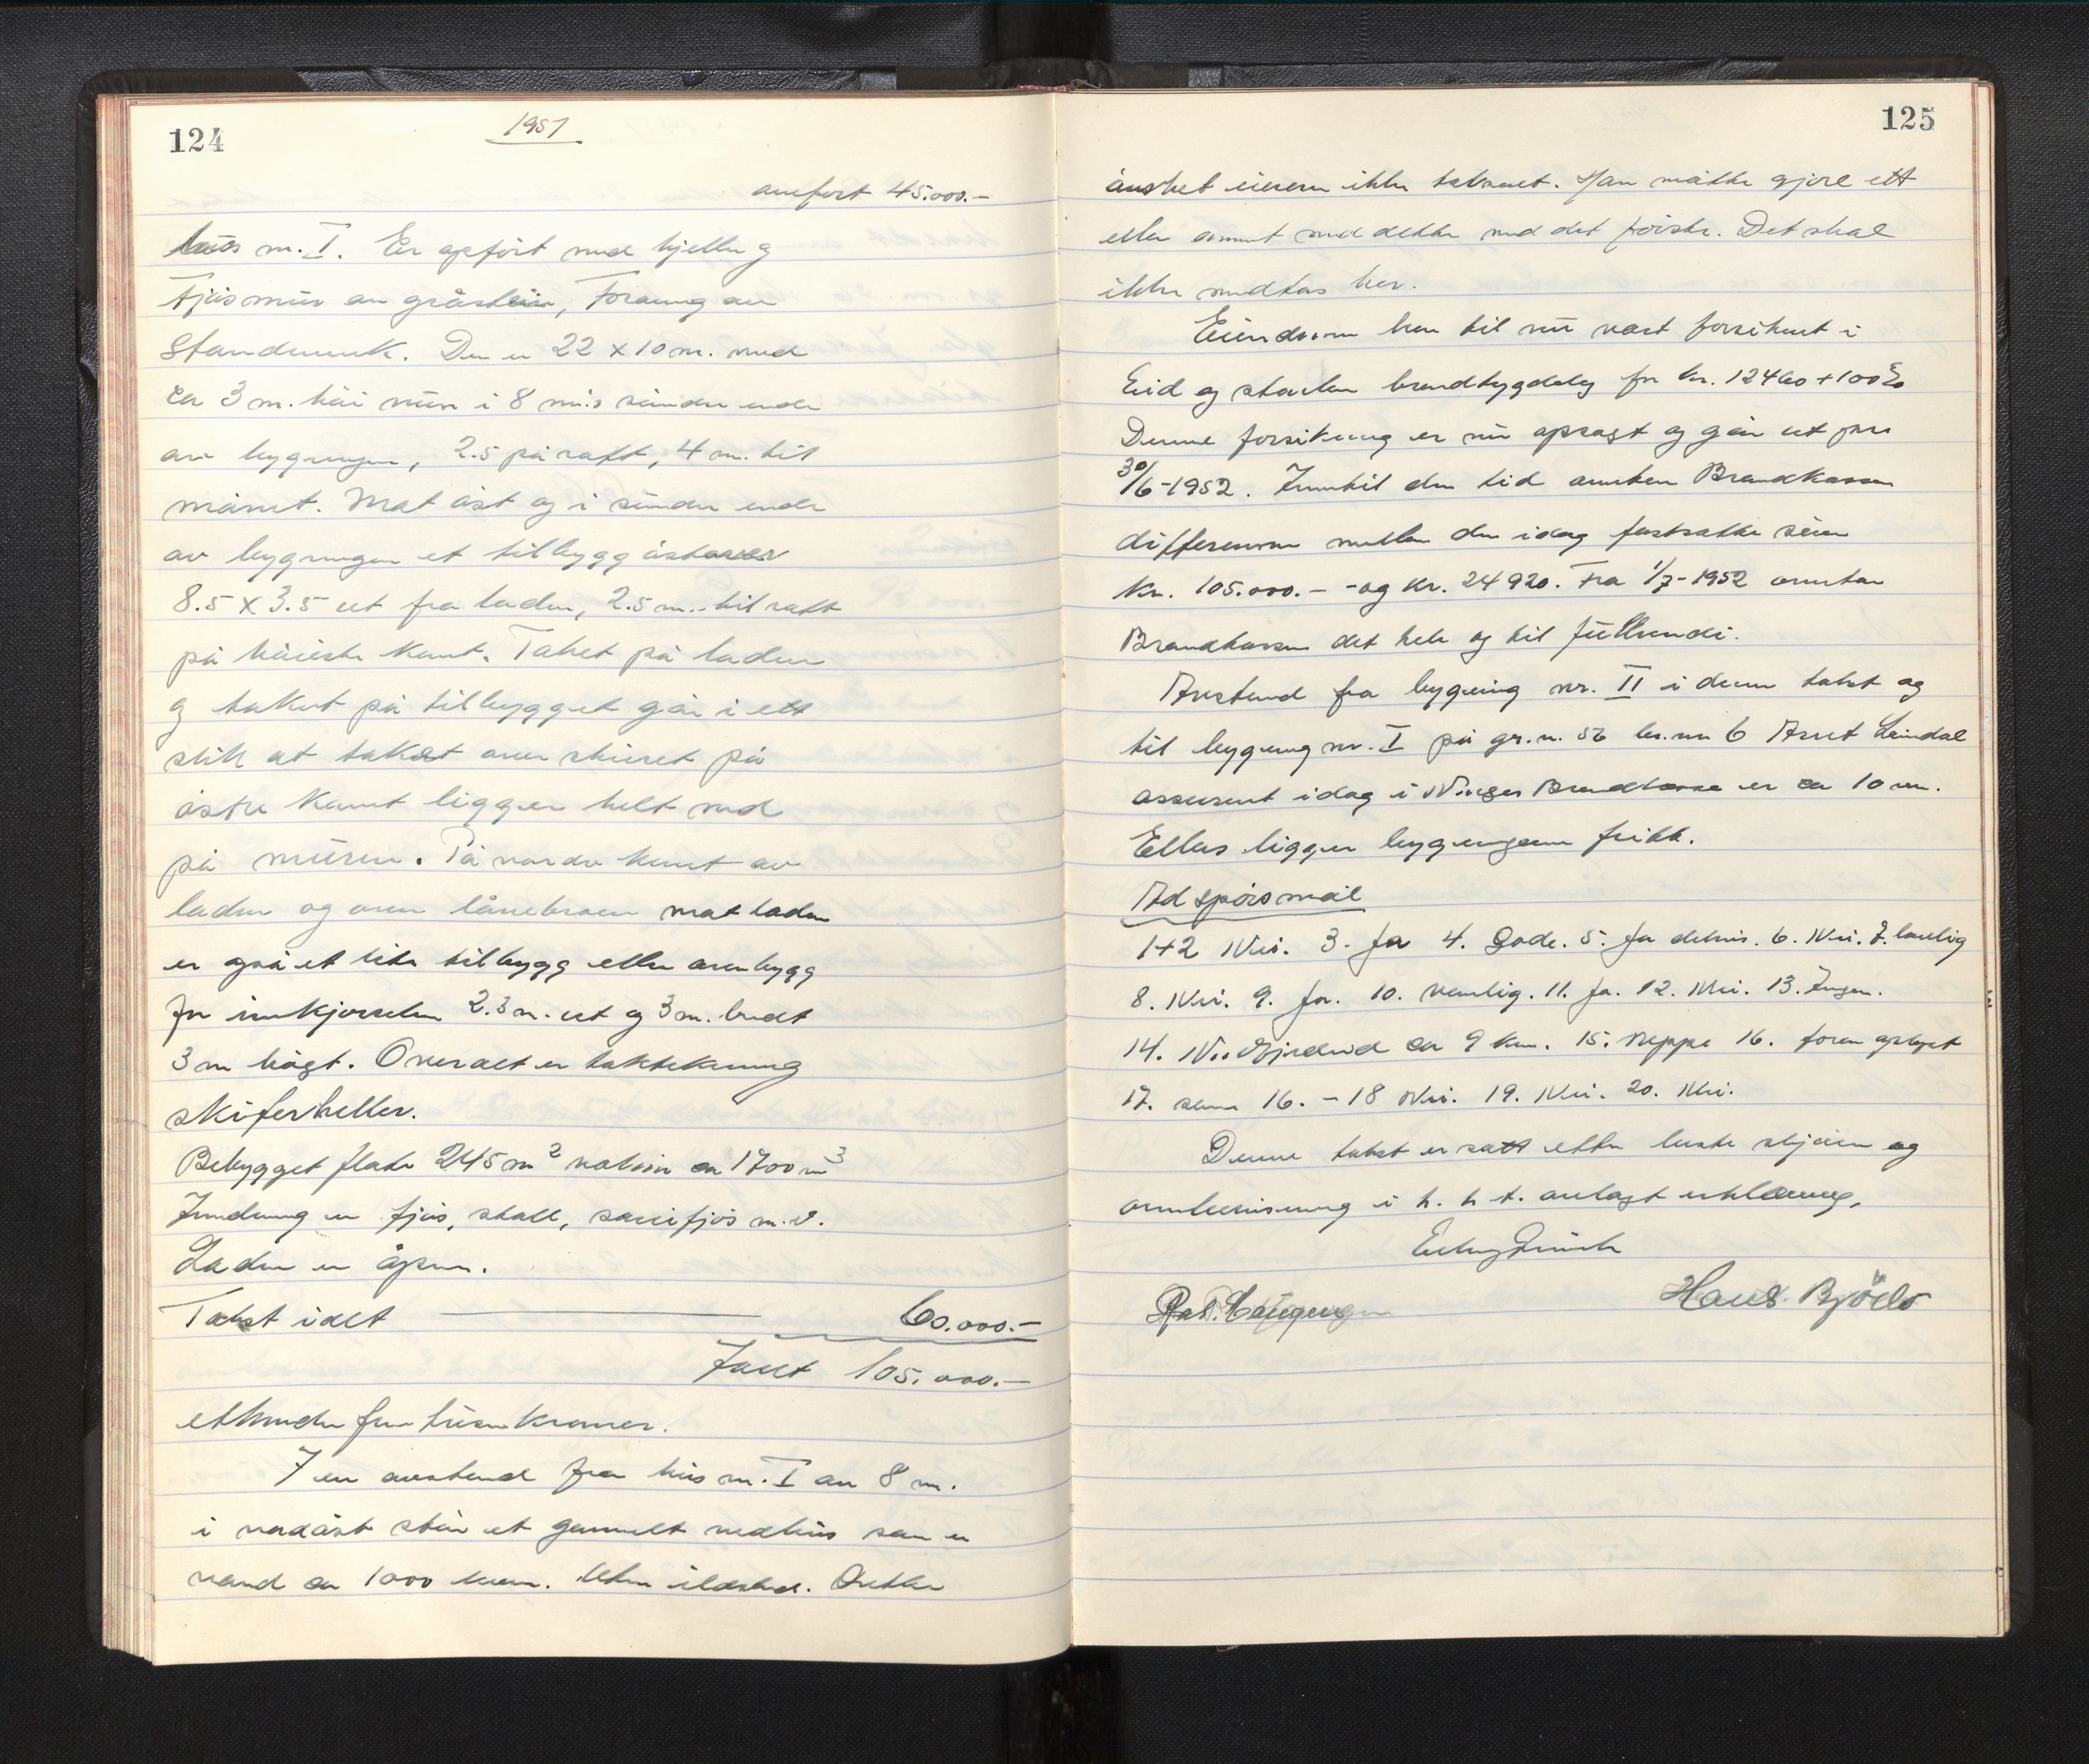 124
1951
overfört 45.000.-
hus nr. II. Er opfört med kjeller og
Fjösmur av gråstein, Foraung av
Standerverk. Den er 22 x 10 m. med
ca 3 m. höi mur i 8 m:s söndre ende
av bygningen, 2.5 på raft, 4 m. til
mönet. Mot öst og i söndre ende
av bygningen et tilbygg östover
8.5 x 3.5 ut fra laden, 2.5 m. til raft
på höieste kant. Taket på laden
og taket på tilbygget går i ett
slik at taket over skuret på
östre kant ligger helt ned
på muren. På nordre kant av
laden og over låvebroen mot laden
er også et lite tilbygg eller overbygg
for innkjörselen 2.3 m. ut og 3 m. bredt
3 m högt. Overalt er taktekning
skiferheller.
Bebygget flate 245 m² volum ca 1700 m³
Inredning er fjös, stall, sauefjös m.v.
Laden er åpen.
Takst i alt 60.000.-
Ialt 105.000.-
etthundre fem tusen kroner.
I en avstand fra hus nr. I av 8 m.
i nordöst står et gammelt vedhus som er
verd ca 1000 kron. Uten ildsted. Dette
125
önsket eieren ikke taksert. Han måtte gjöre ett
eller annet med dette med det förste. Det skal
ikke medtas her.
Eiendommen har til nu vært forsikret i
Eid og starlen brandbygdelag for kr. 12460 + 100%
Denne forsikring er nu opsagt og går ut pr.
30/6-1952. Inntil den tid overtar Brandkassen
differensen mellem den idag fastsatte sum
kr. 105.000.- -og kr. 24920. Fra 1/7-1952 overtar
Brandkassen det hele og til fullverdi.
Avstand fra bygning nr. II i denne takst og
til bygning nr. I på gr.n. 56 br.nr 6 Leirdal
assurert idag i Norges Brandkasse er ca 10 m.
Ellers ligger bygningene fritt.
Ad spörsmål
1+2 Nei. 3. Ja 4. Gode. 5. Ja delvis. 6. Nei. 7. lovlig
8. Nei. 9. Ja. 10. vanlig. 11. Ja. 12. Nei. 13. Ingen.
14. ca 9 km. 15. Neppe 16. foran oplyst
17. som 16. - 18 Nei. 19. Nei. 20. Nei.
Denne takst er satt efter beste skjönn og
overbevisning i h. h. t. avlagt erklæring.
Haugen
Hans Björlo